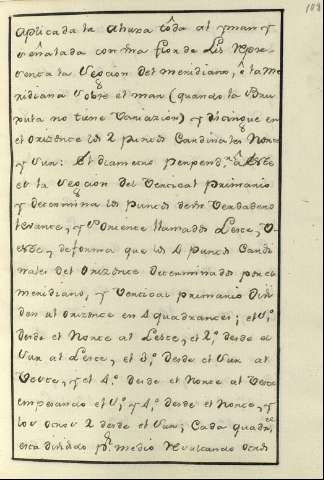 108
Aplicada la Ahuxa toda al yman y
señalada con una flor de Lis Repre-
senta la Seccion del meridiano, ô la Me
ridiana sobre el mar (quando la Bru
xula no tiene Variacion) y distingue en
el Orizonte los 2 puntos Cardinales Norte
y Sur: El diametro perpend.r â este
es la Seccion del Vertical primario
y determina los puntos del Verdadero
Levante, y Oriente llamados Leste, O-
este, de forma que los 4 puntos Cardi
nales del Orizonte determinados por el
meridiano, y Vertical primario divi
den al Orizonte en 4 quadrantes; el 1.º
desde el Norte al Leste, el 2.º desde el
Sur al Leste, el 3.º desde el Sur al
Oeste, y el 4.º desde el Norte al Oeste
empesando el 1.º y 4.º desde el Norte, y
los otros 2 desde el Sur; Cada quadr.te
esta dividido p.r medio Resultando otros